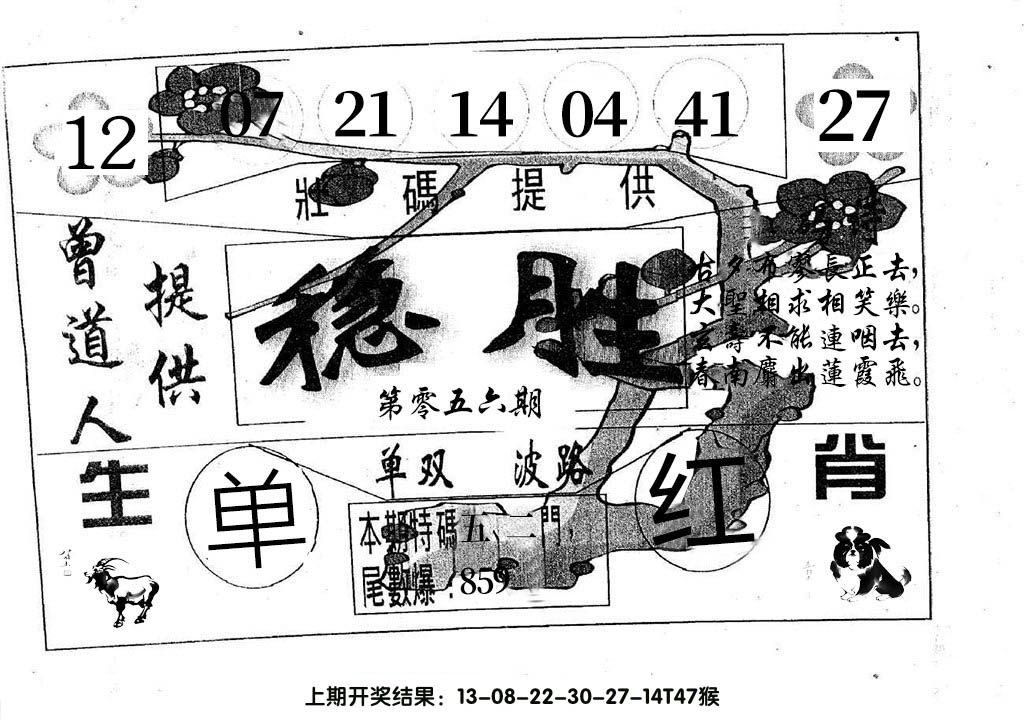 12 07 21 14 04 41 27
壯碼提供
曾道人
提供
稳胜
第零五六期
夕布寥長正去，
大聖相求相笑樂。
壽不能連咽去，
春南麝出蓮霞飛。
单双 波路
生肖
单
红
本期特碼五、二門，
尾數爆：859
上期开奖结果：13-08-22-30-27-14T47猴